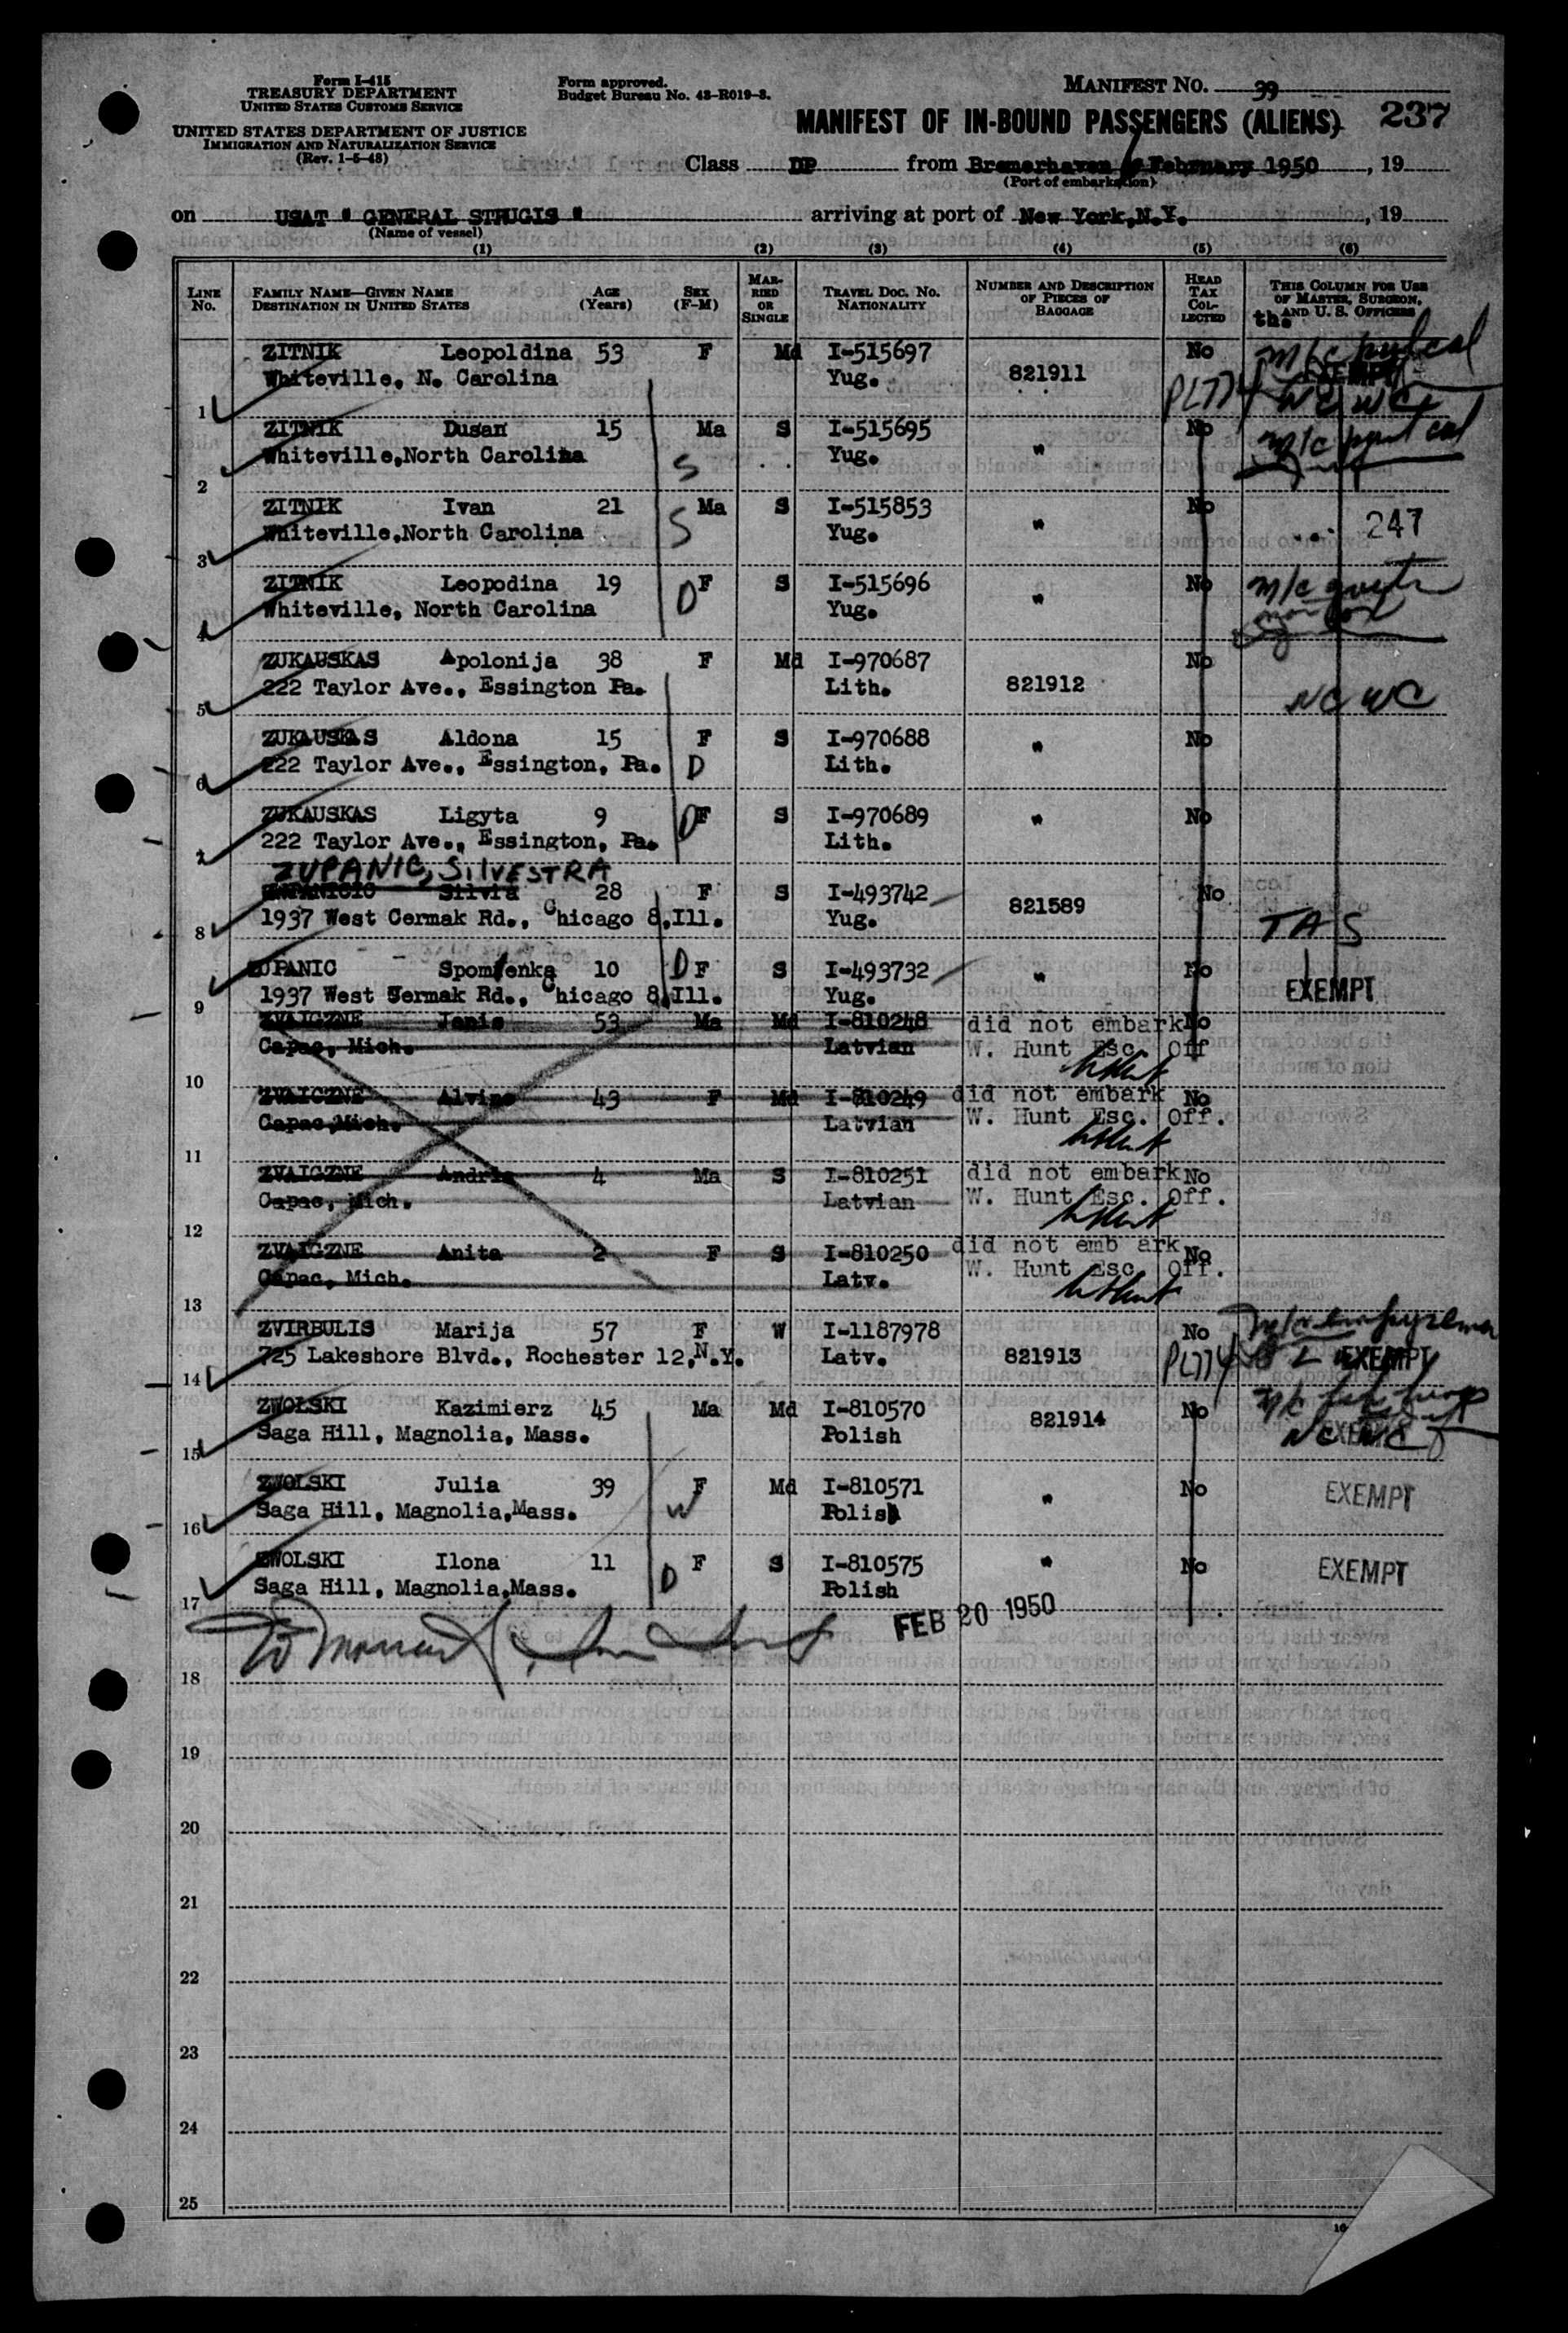 Form I-415
TREASURY DEPARTMENT
UNITED STATES CUSTOMS SERVICE
UNITED STATES DEPARTMENT OF JUSTICE
IMMIGRATION AND NATURALIZATION SERVICE
(Rev. 1-5-48)
Form approved.
Budget Bureau No. 43-R019-3.
MANIFEST NO. 39
MANIFEST OF IN-BOUND PASSENGERS (ALIENS) 237
Class DP from Bremerhaven February 1950, 19
(Port of embarkation)
on USAT " GENERAL STRUGIS " arriving at port of New York,N.Y. , 19
(Name of vessel)
(1) (2) (3) (4) (5) (6)
LINE NO. FAMILY NAME—GIVEN NAME DESTINATION IN UNITED STATES AGE (Years) SEX (F-M) MARRIED OR SINGLE TRAVEL DOC. NO. NATIONALITY NUMBER AND DESCRIPTION OF PIECES OF BAGGAGE HEAD TAX COLLECTED THIS COLUMN FOR USE OF MASTER, SURGEON, AND U. S. OFFICERS
the
ZITNIK Leopoldina 53 F Md I-515697 821911 No EXEMPT
1 Whiteville, N. Carolina Yug. PL774 NCWC
ZITNIK Dusan 15 Ma S I-515695 " No
2 Whiteville,North Carolina S Yug.
ZITNIK Ivan 21 Ma S I-515853 " No 247
3 Whiteville,North Carolina S Yug.
ZITNIK Leopodina 19 F S I-515696 " No
4 Whiteville, North Carolina D Yug.
ZUKAUSKAS Apolonija 38 F Md I-970687 821912 No
5 222 Taylor Ave., Essington Pa. Lith. NCWC
ZUKAUSKAS Aldona 15 F S I-970688 " No
6 222 Taylor Ave., Essington, Pa. D Lith.
ZUKAUSKAS Ligyta 9 F S I-970689 " No
7 222 Taylor Ave., Essington, Pa. D Lith.
ZUPANIC, SILVESTRA
ZUPANICIC Silvia 28 F S I-493742 821589 No
8 1937 West Cermak Rd., Chicago 8,Ill. Yug. TAS
ZUPANIC Spomenka 10 D F S I-493732 " No
9 1937 West Cermak Rd., Chicago 8,Ill. Yug. EXEMPT
ZVAIGZNE Janis 53 Ma Md I-810248 did not embark No
10 Capac, Mich. Latvian W. Hunt Esc. Off
ZVAIGZNE Alvine 43 F Md I-810249 did not embark No
11 Capac,Mich. Latvian W. Hunt Esc. Off.
ZVAIGZNE Andris 4 Ma S I-810251 did not embark No
12 Capac, Mich. Latvian W. Hunt Esc. Off.
ZVAIGZNE Anita 2 F S I-810250 did not emb ark No
13 Capac, Mich. Latv. W. Hunt Esc. Off.
ZVIRBULIS Marija 57 F W I-1187978 821913 No
14 725 Lakeshore Blvd., Rochester 12,N.Y. Latv. PL774 EXEMPT
ZWOLSKI Kazimierz 45 Ma Md I-810570 821914 No
15 Saga Hill, Magnolia, Mass. Polish NCWC EXEMPT
ZWOLSKI Julia 39 F Md I-810571 " No EXEMPT
16 Saga Hill, Magnolia,Mass. W Polish
ZWOLSKI Ilona 11 F S I-810575 " No EXEMPT
17 Saga Hill, Magnolia,Mass. D Polish
FEB 20 1950
18
19
20
21
22
23
24
25